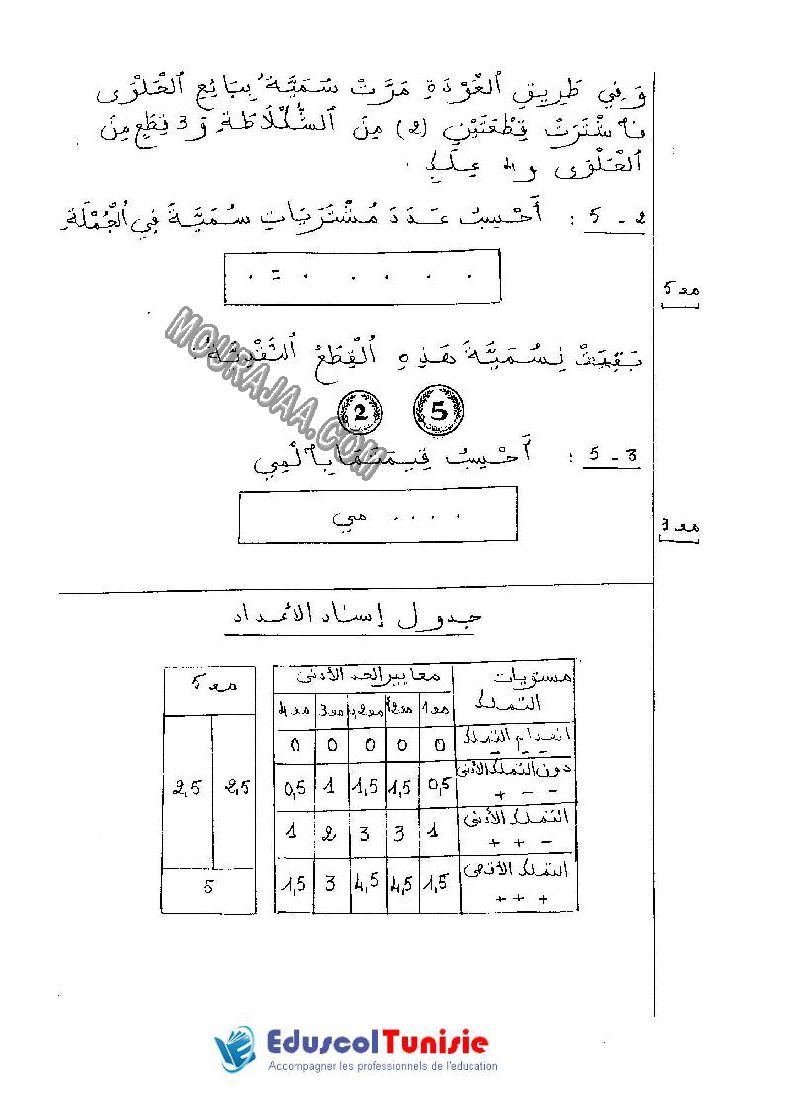 وَفِي طَرِيقِ الْعَوْدَةِ مَرَّتْ سُمَيَّةُ بِبَائِعِ الْحَلْوَى
فَاشْتَرَتْ قِطْعَتَيْنِ (2) مِنَ الشُّكُلَاطَةِ وَ3 قِطَعٍ مِنَ
الْحَلْوَى و4 عِلَكٍ.
5 - 2 : أَحْسِبُ عَدَدَ مُشْتَرَيَاتِ سُمَيَّةَ فِي الْجُمْلَةِ
. . . . . = .
مع 5
بَقِيَتْ لِسُمَيَّةَ هَذِهِ الْقِطَعُ النَّقْدِيَّةُ
2 5
5 - 3 : أَحْسِبُ قِيمَتَهَا بِالْمِي
. . . . مي
مع 3
جدول إسناد الأعداد
مستويات التملك معايير الحد الأدنى
مع1 مع2 مع2 مع3 مع4
انعدام التملك - - - 0 0 0 0 0
دون التملك الأدنى + - - 0,5 1,5 1,5 1 0,5
التملك الأدنى + + - 1 3 3 2 1
التملك الأقصى + + + 1,5 4,5 4,5 3 1,5
مع 5
2,5 2,5
5
MOURAJAA.COM
EduscolTunisie
Accompagner les professionnels de l'education